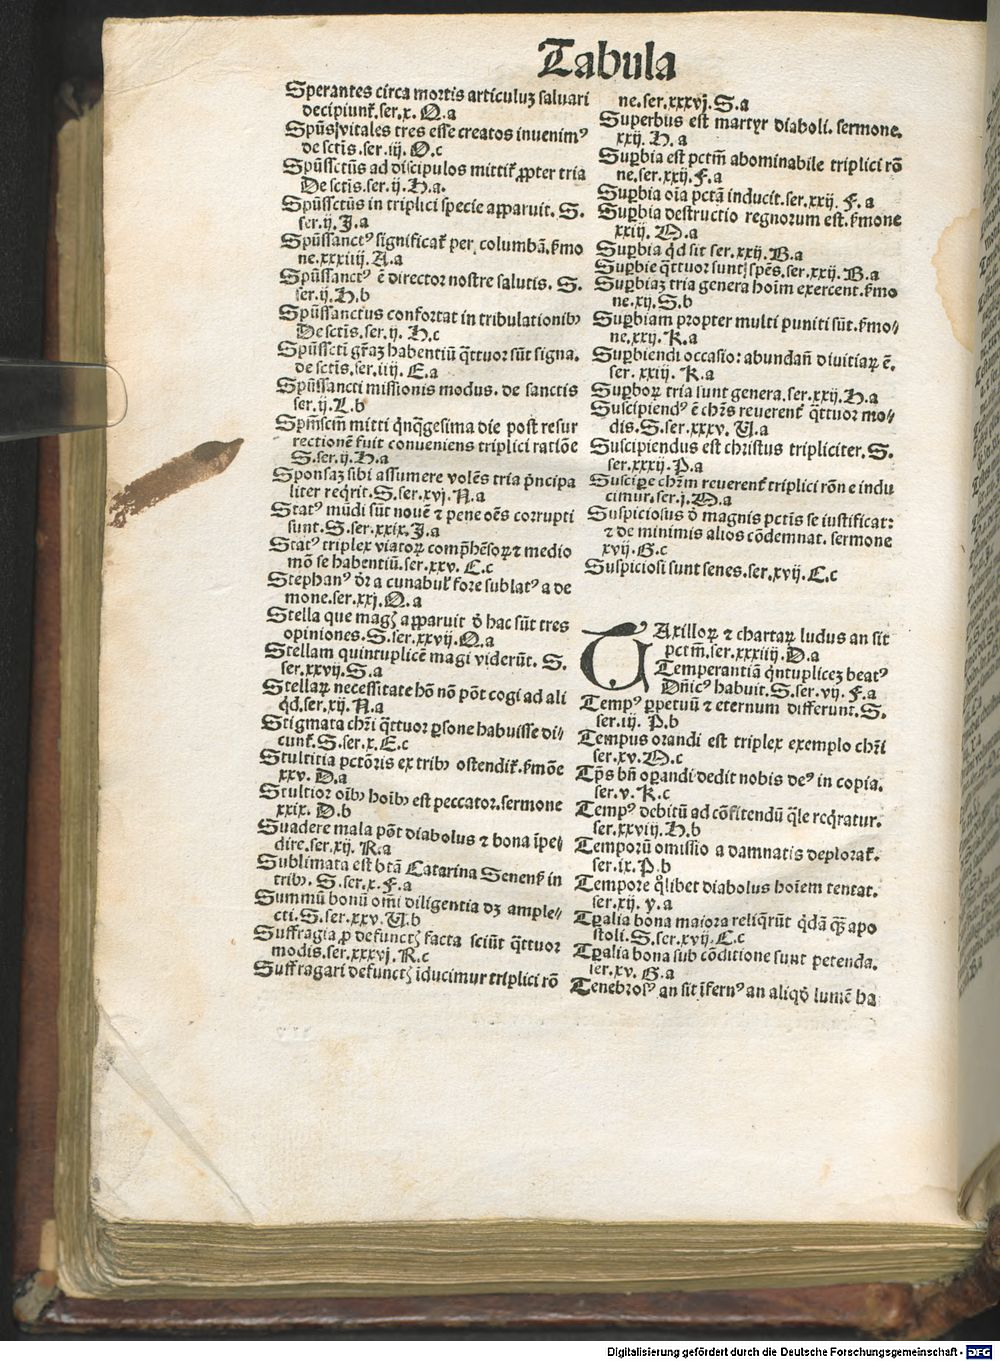 Tabula
Sperantes circa mortis articuluꝫ saluari
decipiunt᷑.ser.x. Q.a
Spūs vitales tres esse creatos inuenimꝰ
de sctīs.ser.iij. O.c
Spūssctūs ad discipulos mittit᷑ ꝓpter tria
De sctīs.ser.ij. H.a.
Spūssctūs in triplici specie apparuit. S.
ser.ij. I.a
Spūssanctꝰ significat᷑ per columbā. ẜmo
ne.xxxiiij. A.a
Spūssanctꝰ ē director nostre salutis. S.
ser.ij. H.b
Spūssanctus confortat in tribulationibꝫ
De sctīs.ser.ij. H.c
Spūssctī gr̄aꝫ habentiū q̄ttuor sūt signa.
de sctīs.ser.iiij. E.a
Spūssancti missionis modus. de sanctis
ser.ij. L.b
Spm̄scm̄ mitti q̇nq̄gesima die post resur
rectionē fuit conueniens triplici ratiōe
S.ser.ij. H.a
Sponsaꝫ sibi assumere volēs tria p̄ncipa
liter req̇rit. S.ser.xvj. N.a
Statꝰ mūdi sūt nouē ⁊ pene oēs corrupti
sunt. S.ser.xxix. I.a
Statꝰ triplex viatoꝝ comp̄hēsoꝝ ⁊ medio
mō se habentiū.ser.xxv. C.c
Stephanꝰ ō̄r a cunabul᷑ fore sublatꝰ a de
mone.ser.xxj. Q.a
Stella que magꝭ apparuit ō hac sūt tres
opiniones. S.ser.xxvij. Q.a
Stellam quintuplicē magi viderūt. S.
ser.xxvij. S.a
Stellaꝝ necessitate hō nō pōt cogi ad ali
q̇d.ser.xij. N.a
Stigmata chr̄i q̄ttuor ꝑsone habuisse di⸗
cunt᷑. S.ser.x. E.c
Stultitia pctōris ex tribꝫ ostendit᷑. ẜmōe
xxv. D.a
Stultior oībꝫ hoībꝫ est peccator.sermone
xxix. D.b
Suadere mala pōt diabolus ⁊ bona īpe⸗
dire.ser.xij. R.a
Sublimata est btā Catarina Senenẜ in
tribꝫ. S.ser.x. F.a
Summū bonū om̄i diligentia dꝫ ample⸗
cti. S.ser.xxv. U.b
Suffragia ꝓ defunctꝭ facta seiūt q̄ttuor
modis.ser.xxxvj. R.c
Suffragari defunctꝭ iducimur triplici rō
ne.ser.xxxvj. S.a
Superbus est martyr diaboli. sermone.
xxij. H.a
Suꝑbia est pctm̄ abominabile triplici rō
ne.ser.xxij. F.a
Suꝑbia oīa pctā inducit.ser.xxij. F.a
Suꝑbia destructio regnorum est. ẜmone
xxiij. M.a
Suꝑbia q̇d sit ser.xxij. B.a
Suꝑbie q̄ttuor sunt spēs.ser.xxij. B.a
Suꝑbiaꝫ tria genera hoīm exercent. ẜmo
ne.xij. S.b
Suꝑbiam propter multi puniti sūt. ẜmo⸗
ne.xxij. K.a
Suꝑbiendi occasio: abundan̄ diuitiaꝝ ē.
ser. xxiij. K.a
Suꝑboꝝ tria sunt genera.ser.xxij. H.a
Suscipiendꝰ ē chr̄s reuerent᷑ q̄ttuor mo⸗
dis. S.ser.xxxv. U.a
Suscipiendus est christus tripliciter. S.
ser.xxxij. P.a
Susciꝑe chr̄m reuerent᷑ triplici rōne indu
cimur.ser.j. M.a
Suspiciosus ō magnis pctīs se iustificat:
⁊ de minimis alios cōdemnat. sermone
xvij. G.c
Suspiciosi sunt senes.ser.xvij. C.c
TAxilloꝝ ⁊ chartaꝝ ludus an sit
pctm̄.ser.xxxiiij. D.a
Temperantiā q̇ntupliceꝫ beatꝰ
Dn̄icꝰ habuit. S.ser.vij. F.a
Tempꝰ ꝑpetuū ⁊ eternum differunt. S.
ser.iij. P.b
Tempus orandi est triplex exemplo chr̄i
ser.xv. M.c
Tp̄s bn̄ oꝑandi dedit nobis deꝰ in copia.
ser.v. K.c
Tempꝰ debitū ad cōfitendū q̄le req̇ratur.
ser.xxviij. H.b
Temporū omissio a damnatis deplorat᷑.
ser.ix. P.b
Tempore q̇libet diabolus hoīem tentat.
ser.xij. y.a
Tꝑalia bona maiora reliq̇rūt q̇dā q̄ꝫ apo
stoli. S.ser.xvij. C.c
Tꝑalia bona sub cōditione sunt petenda.
ser.xv. G.a
Tenebrosꝰ an sit īfernꝰ an aliqō lumē ha
Digitalisierung gefördert durch die Deutsche Forschungsgemeinschaft - DFG